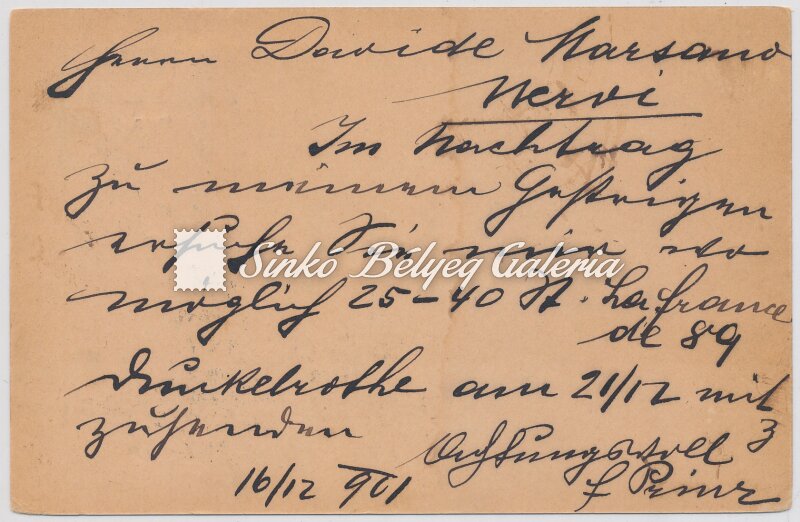 Herrn Davide Marsano
Nervi
Im Nachtrag
zu meinem Gestrigen
ersuche Sie mir wo
möglich 25-40 St. La france
de 89
dunkelrothe am 21/12 mit
zusenden
Achtungsvoll
16/12 901
F Prinz
Sinkó Bélyeg Galéria